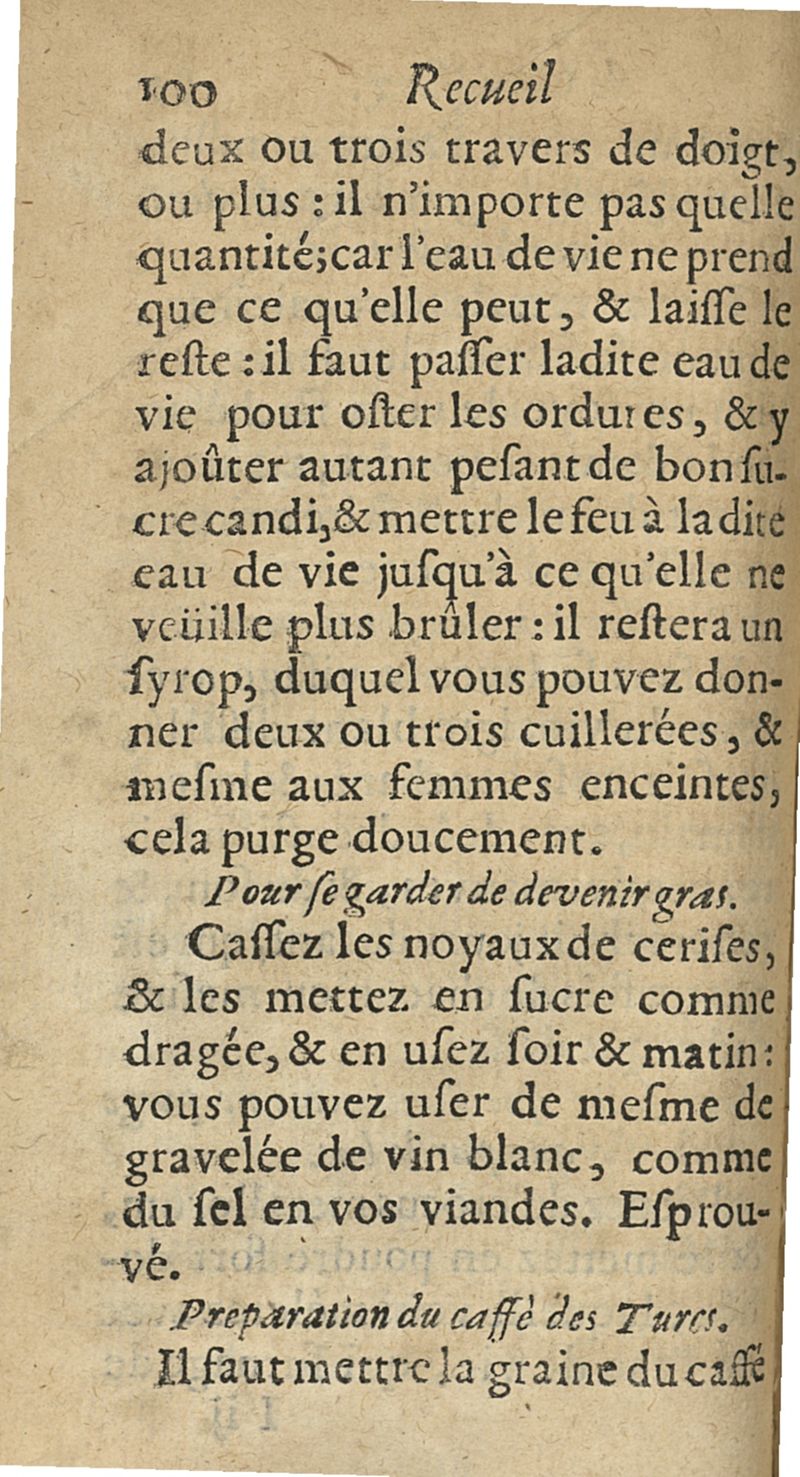 100 Recueil
deux ou trois travers de doigt,
ou plus : il n'importe pas quelle
quantité; car l'eau de vie ne prend
que ce qu'elle peut, & laiſſe le
reſte : il faut paſſer ladite eau de
vie pour oſter les ordures, & y
ajoûter autant peſant de bon ſu-
cre candi, & mettre le feu à ladite
eau de vie juſqu'à ce qu'elle ne
veüille plus brûler : il reſtera un
ſyrop, duquel vous pouvez don-
ner deux ou trois cuillerées, &
meſme aux femmes enceintes,
cela purge doucement.
Pour ſe garder de devenir gras.
Caſſez les noyaux de ceriſes,
& les mettez en ſucre comme
dragée, & en uſez ſoir & matin :
vous pouvez uſer de meſme de
gravelée de vin blanc, comme
du ſel en vos viandes. Eſprou-
vé.
Preparation du caffè des Turcs.
Il faut mettre la graine du caffé